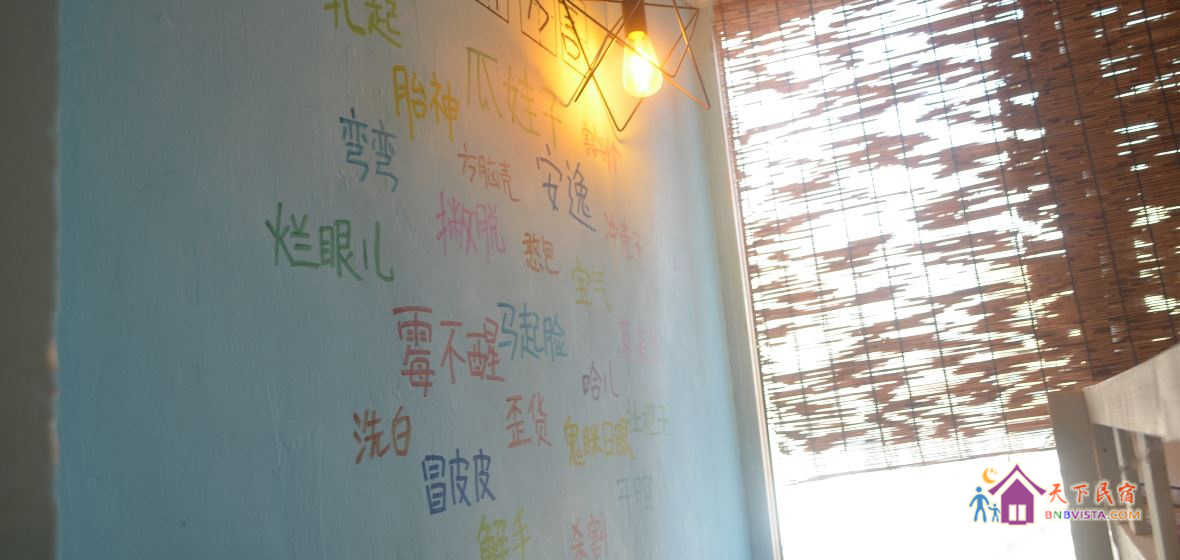 扎起
胎神
瓜娃子
弯弯
方脑壳
安逸
撇脱
烂眼儿
憨包
宝气
霉不醒
马起脸
哈儿
洗白
歪货
鬼眯日眼
冒皮皮
解手
杀割
天下民宿
BNBVISTA.COM